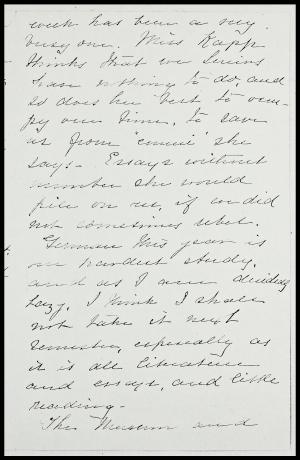 week has been a very
busy one. Miss Kapp
thinks that we Seniors
have nothing to do, and
so does her best to occu-
py our time, to save
us from "ennui" she
says:- Essays without
number she would
pile on us, if we did
not sometimes rebel.
German this year is
our hardest study,
and as I am decidedly
lazy, I think I shall
not take it next
semester, especially as
it is all literature
and essays, and little
reading.
The Museum and